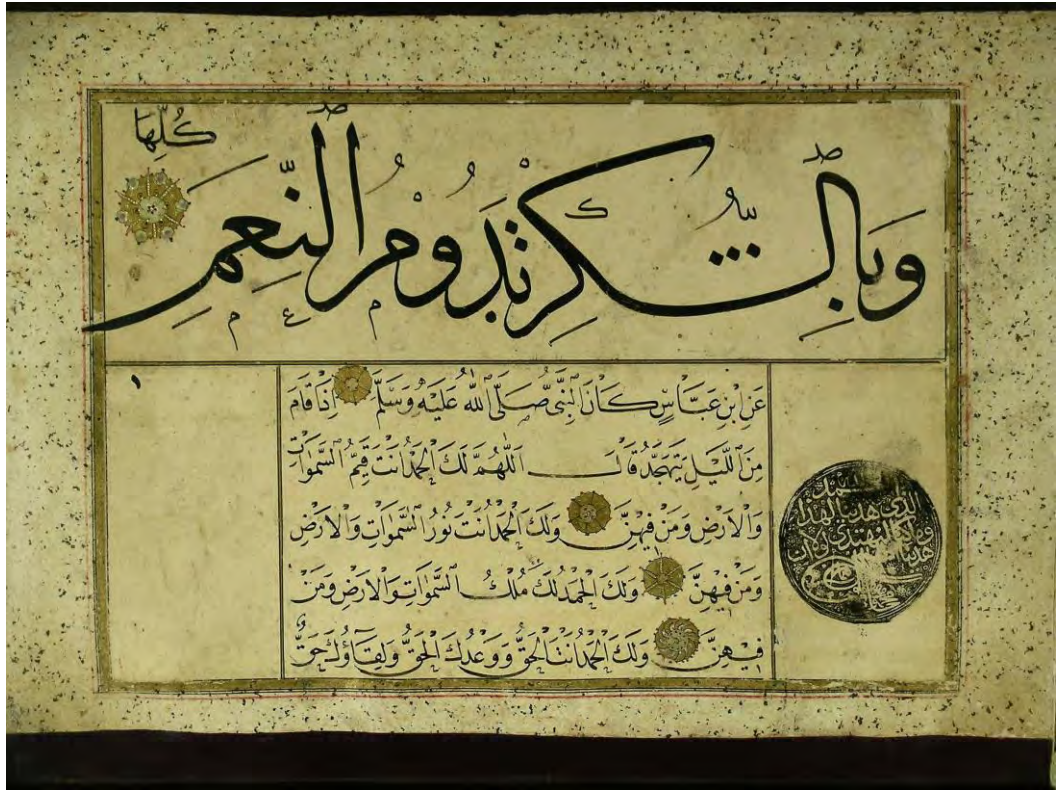 وَبِالشُّكْرِ تَدُومُ النِّعَمِ كُلِّهَا
عَنِ ابْنِ عَبَّاسٍ كَانَ النَّبِيُّ صَلَّى اللّٰهُ عَلَيْهِ وَسَلَّمَ اِذَا قَامَ
مِنَ اللَّيْلِ يَتَهَجَّدُ قَالَ اَللّٰهُمَّ لَكَ الْحَمْدُ اَنْتَ قَيِّمُ السَّمٰوَاتِ
وَالْاَرْضِ وَمَنْ فِيهِنَّ وَلَكَ الْحَمْدُ اَنْتَ نُورُ السَّمٰوَاتِ وَالْاَرْضِ
وَمَنْ فِيهِنَّ وَلَكَ الْحَمْدُ لَكَ مُلْكُ السَّمٰوَاتِ وَالْاَرْضِ وَمَنْ
فِيهِنَّ وَلَكَ الْحَمْدُ اَنْتَ الْحَقُّ وَوَعْدُكَ الْحَقُّ وَلِقَاۤؤُكَ حَقٌّ
١
الذي هدينا لهذا
وما كنا لنهتدي لولا ان